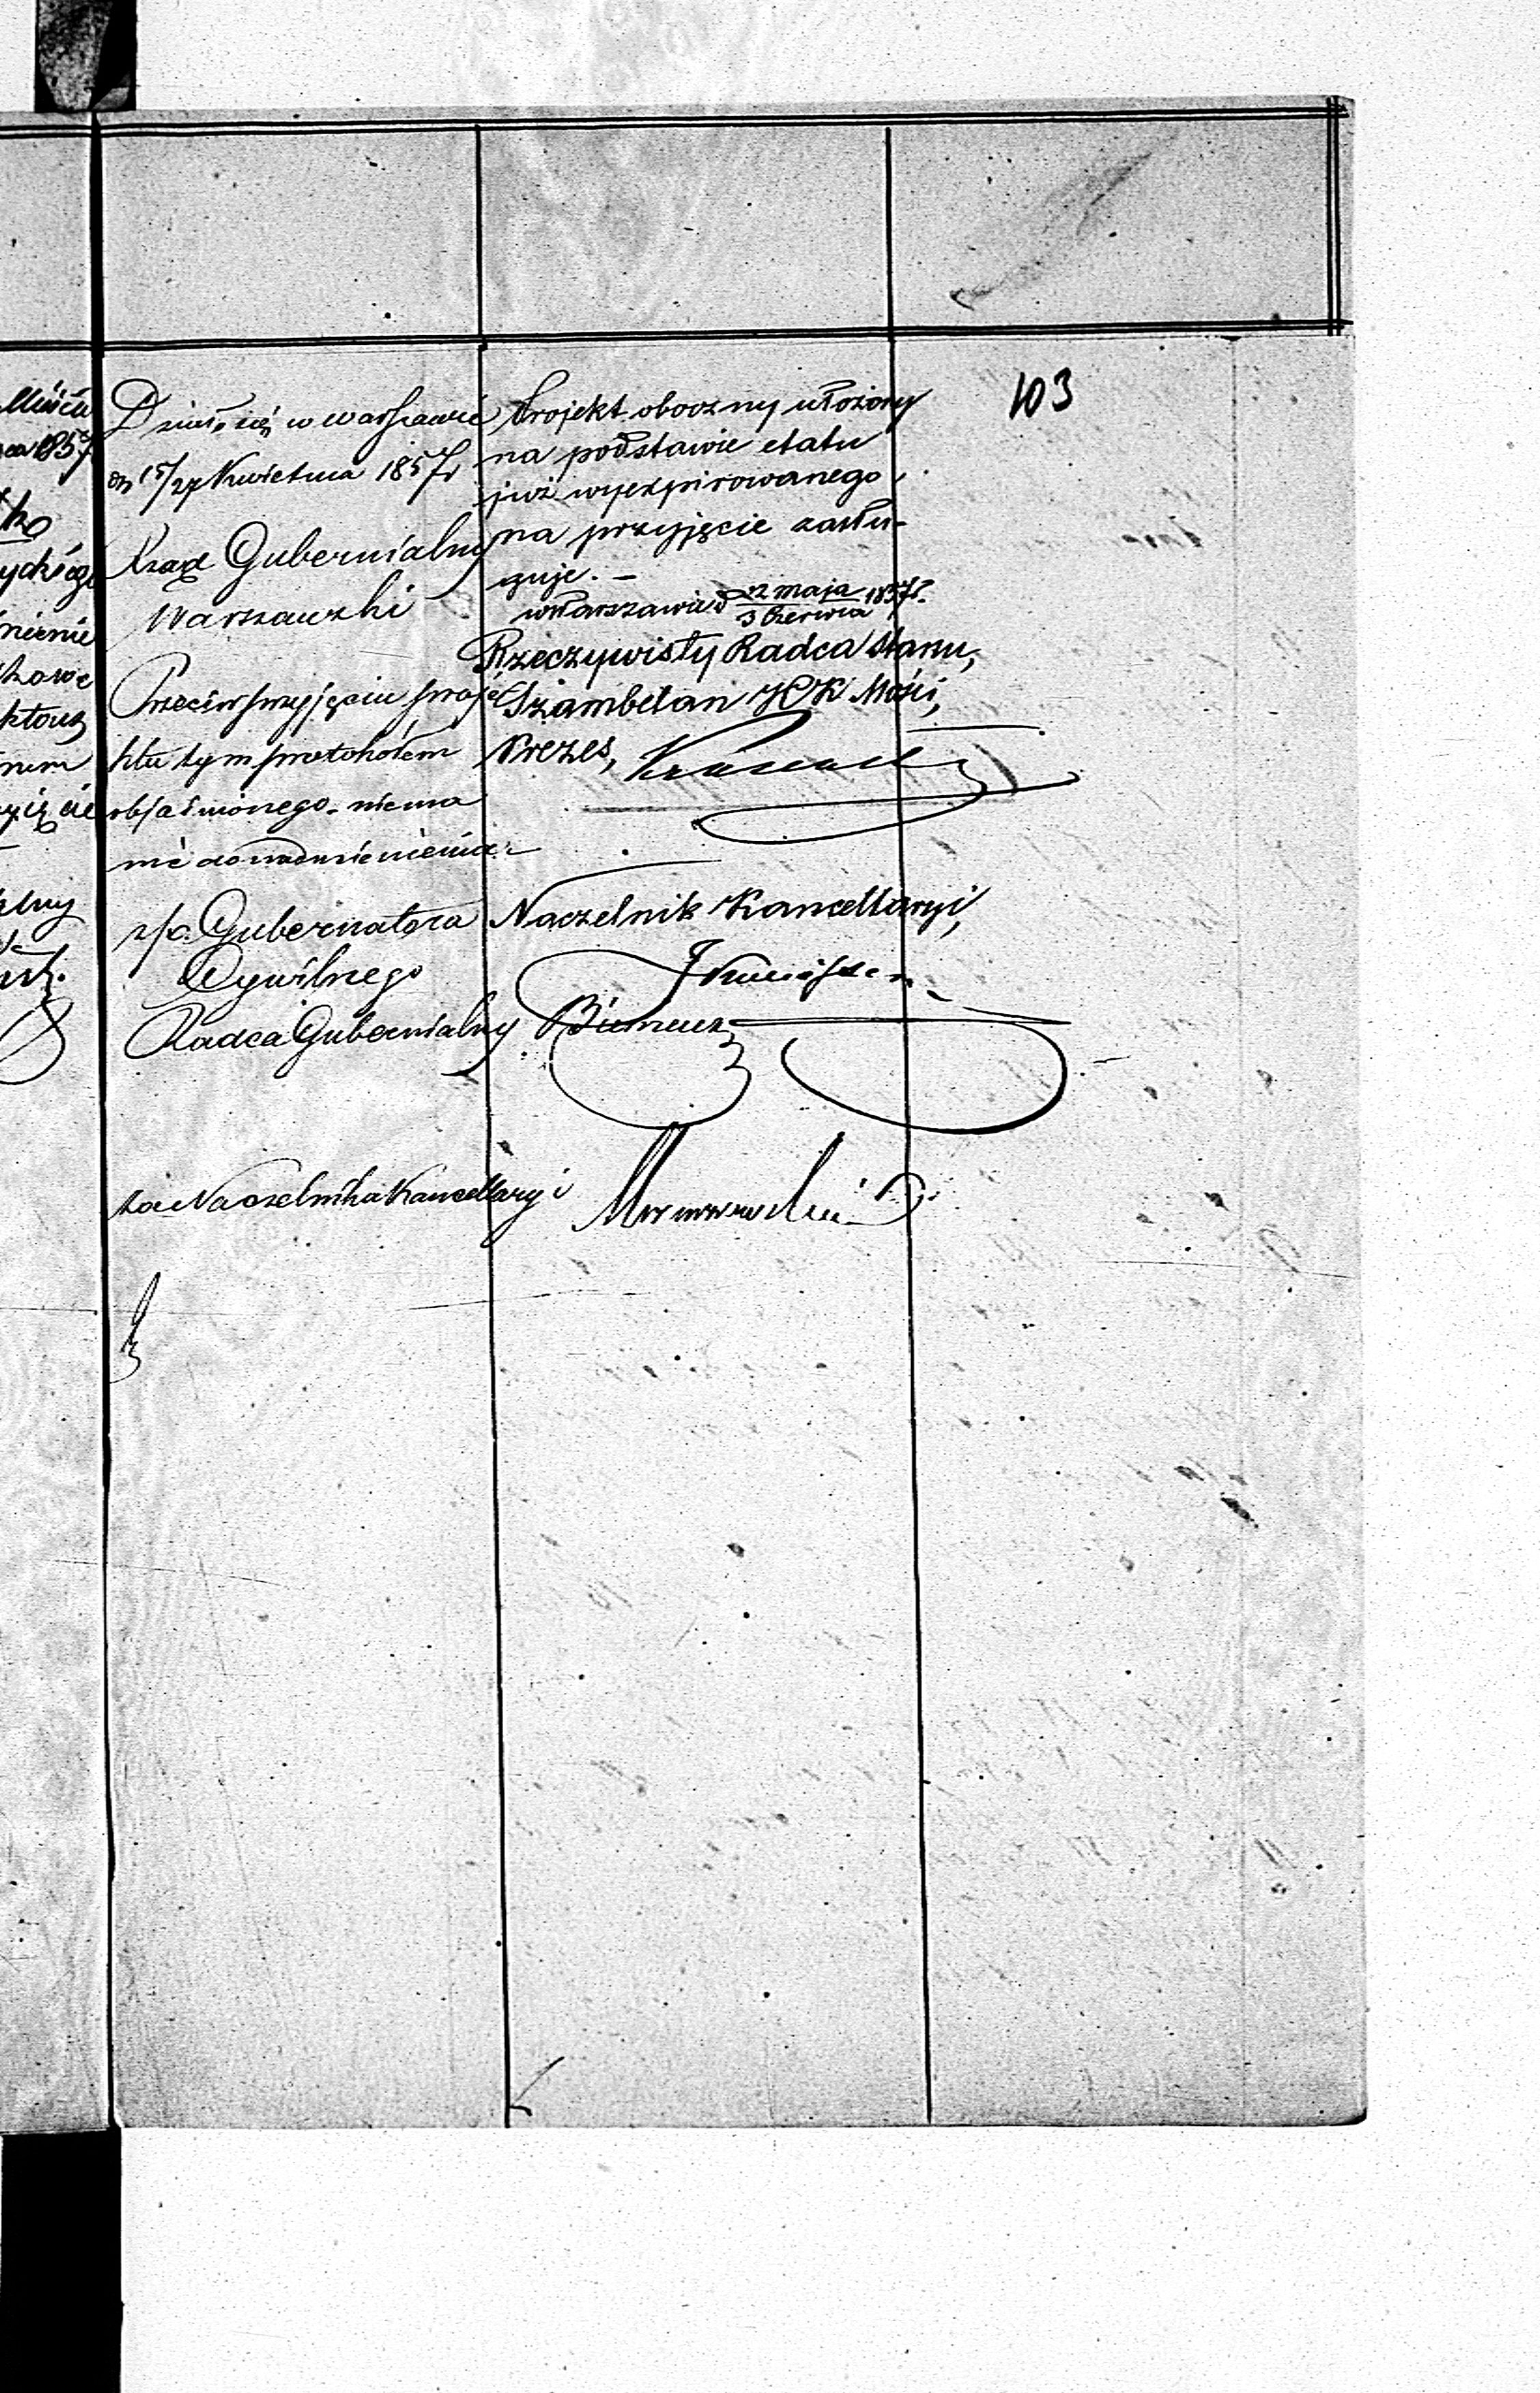 103
Działo się w Warszawie
dn 15/27 Kwietnia 1857 r
Rząd Gubernialny
Warszawski
Przeciw przyjęciu proje
ktu tym protokołem
objaśnionego niema
nic do nadmienienia
z/p. Gubernatora
Cywilnego
Radca Gubernialny
za Naczelnika Kancellaryi
Projekt oboczny ułożony
na podstawie etatu
już wyexpirowanego
na przyjęcie zasłu-
guje. –
w Warszawie d 22 Maja / 3 Czerwca 1857 r.
Rzeczywisty Radca Stanu,
Szambelan JCK Mości,
Prezes,
Naczelnik Kancellaryi,